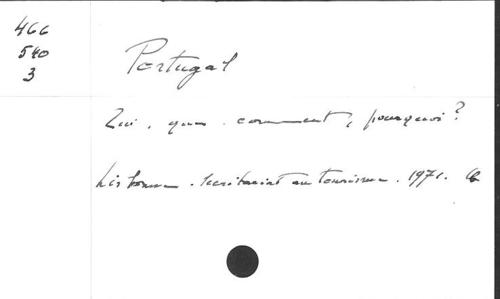 466
540
3
Portugal
Qui, quoi, comment, pourquoi?
Lisbonne. Secrétariat au tourisme. 1971.